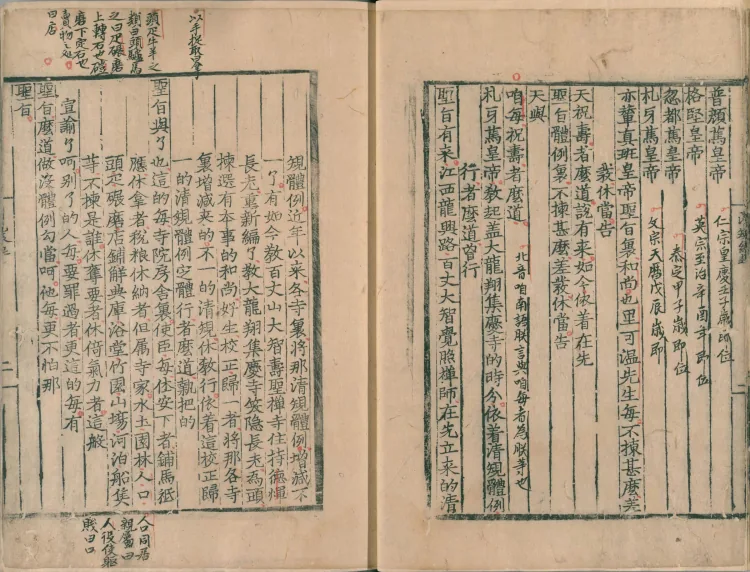 普顏篤皇帝 仁宗皇慶壬子歲即位
格堅皇帝 英宗至治辛酉年即位
忽都篤皇帝 泰定甲子歲即位
札牙篤皇帝 文宗天曆戊辰歲即
亦輦真班皇帝聖旨裏和尚也里可溫先生每不揀甚麼差
發休當告
天祝壽者麼道說有來如今依着在先
聖旨體例裏不揀甚麼差發休當告
天與
咱每祝壽者麼道 北音咱南語朕言與咱每者為朕等也
札牙篤皇帝教起盖大龍翔集慶寺的時分依着清規體例
行者麼道曾行
聖旨有來江西龍興路百丈大智覺照禪師在先立來的清
規體例近年以來各寺裏將那清規體例增減不
一了有如今教百丈山大智壽聖禪寺住持德煇
長老重新編了教大龍翔集慶寺笑隱長老為頭
揀選有本事的和尚好生校正歸一者將那各寺
裏增減來的不一的清規休教行依着這校正歸
一的清規體例定體行者麼道執把的
聖旨與了也這的每寺院房舍裏使臣每休安下者鋪馬祗
應休拿者稅粮休納者但属寺家水土園林人口
頭疋碾磨店鋪解典庫浴堂竹園山塲河泊船筏
等不揀是誰休奪要者休倚氣力者這般
宣諭了呵別了的人每要罪過者更這的每有
聖旨麼道做沒體例勾當呵他每更不怕那
聖旨
以手採取曰拿
頭疋牛羊之
類曰頭驢馬
之曰疋碾磨
上轉石也磑
磨下定石也
賣物之処
曰店
人口同居
親属曰
人役使驅
賎曰口